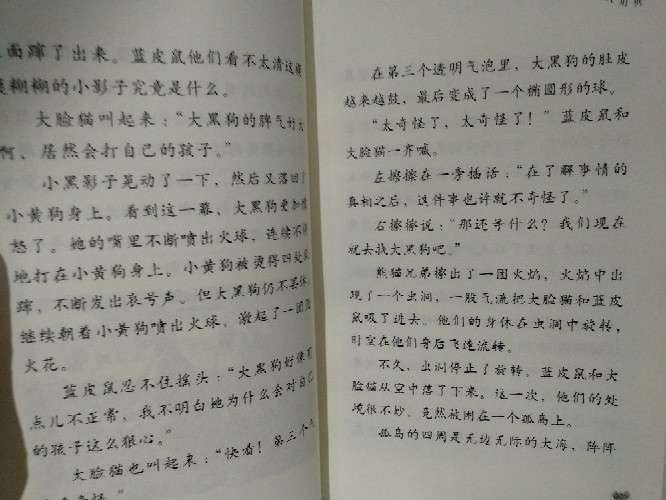 面蹿了出来。蓝皮鼠他们看不太清这
糊糊的小影子究竟是什么。
大脸猫叫起来：“大黑狗的脾气好大
啊，居然会打自己的孩子。”
小黑影子晃动了一下，然后又落回
小黄狗身上。看到这一幕，大黑狗更加
怒了。她的嘴里不断喷出火球，连续不
地打在小黄狗身上。小黄狗被烫得四处
蹿，不断发出哀号声。但大黑狗仍不罢休
继续朝着小黄狗喷出火球，激起了一团
火花。
蓝皮鼠忍不住摇头：“大黑狗好像有
点儿不正常，我不明白她为什么会对自己
的孩子这么狠心。”
大脸猫也叫起来：“快看！第三个气
在第三个透明气泡里，大黑狗的肚皮
越来越鼓，最后变成了一个椭圆形的球。
“太奇怪了，太奇怪了！”蓝皮鼠和
大脸猫一齐喊。
左擦擦在一旁插话：“在了解事情的
真相之后，这件事也许就不奇怪了。”
右擦擦说：“那还等什么？我们现在
就去找大黑狗吧。”
熊猫兄弟擦出了一团火焰，火焰中出
现了一个虫洞，一股气流把大脸猫和蓝皮
鼠吸了进去。他们的身体在虫洞中旋转，
时空在他们身后飞速流转。
不久，虫洞停止了旋转，蓝皮鼠和大
脸猫从空中落了下来。这一次，他们的处
境很不妙，竟然被困在一个孤岛上。
孤岛的四周是无边无际的大海，阵阵